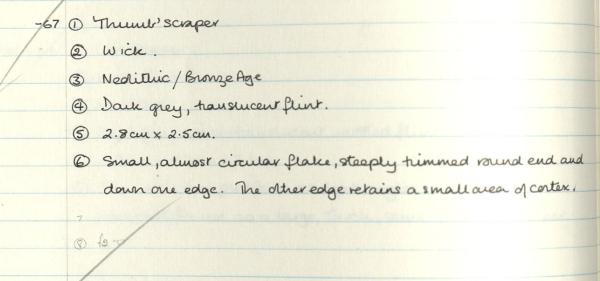 -67 ① 'Thumb' scraper
② Wick.
③ Neolithic / Bronze Age
④ Dark grey, translucent flint.
⑤ 2.8cm x 2.5cm.
⑥ Small, almost circular flake, steeply trimmed round end and
down one edge. The other edge retains a small area of cortex.
7
⑧